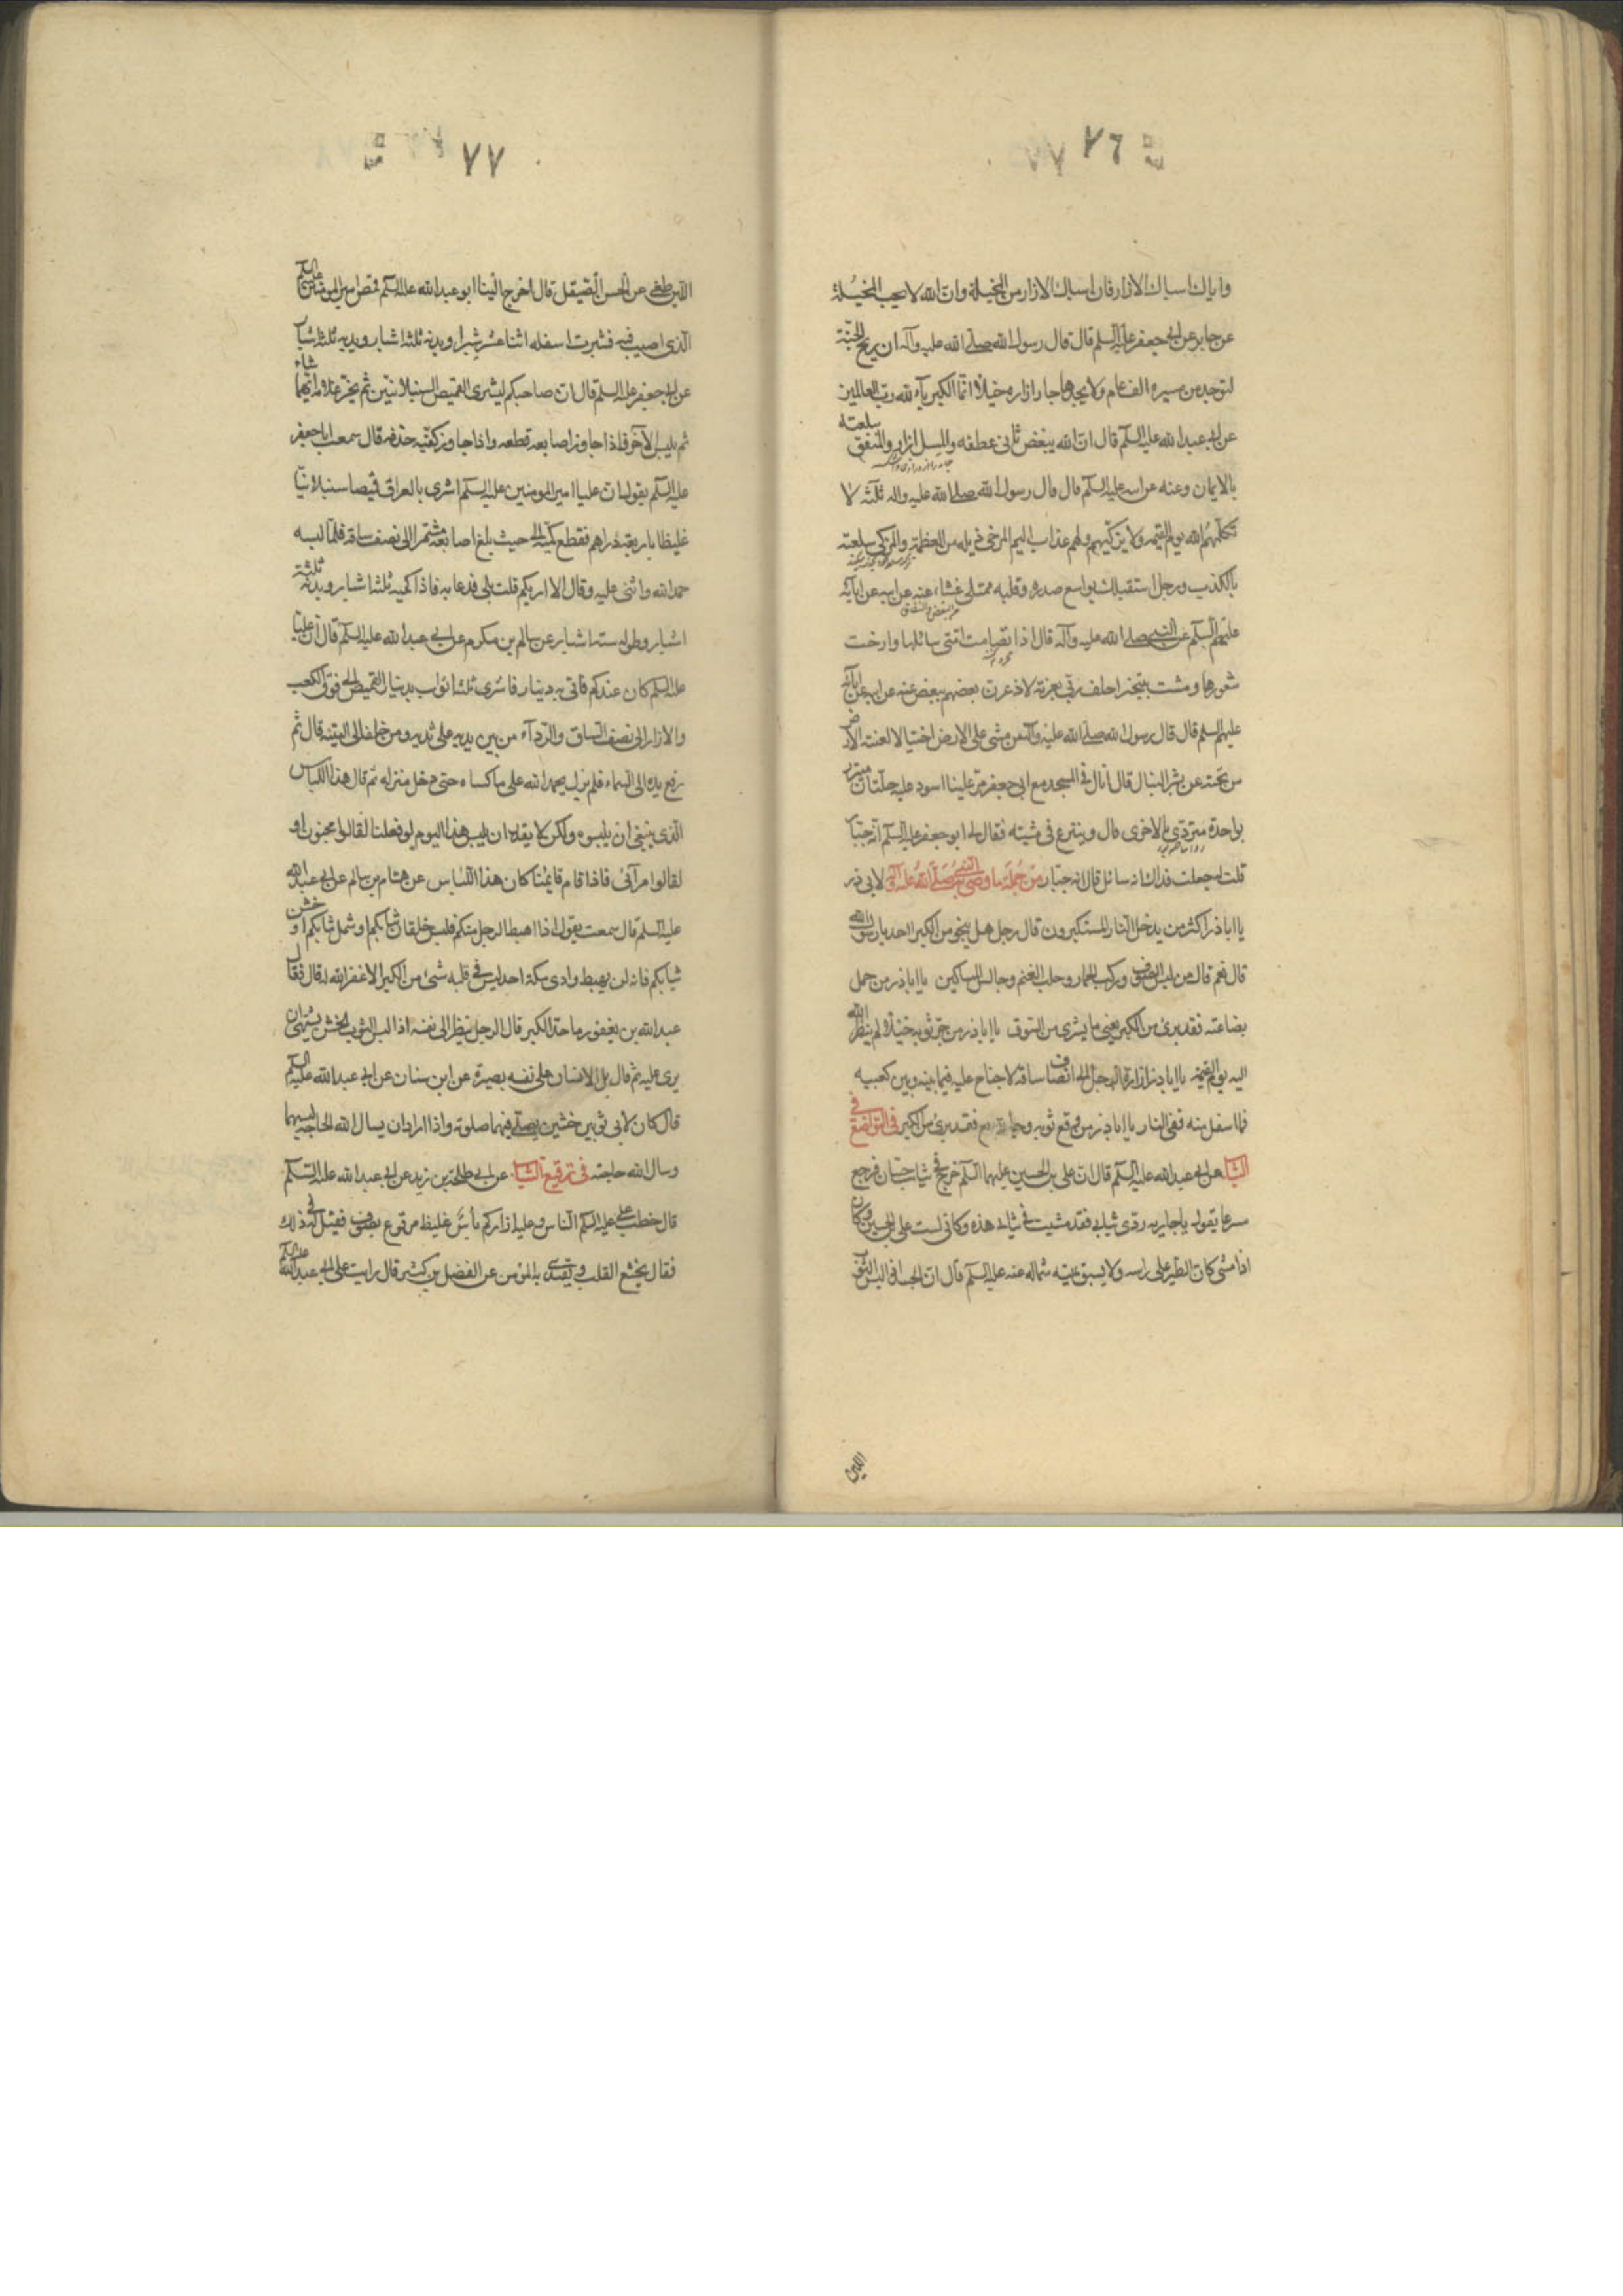 ٧٦
واياك اسبال الازار فان اسبال الازار من المخيلة وان الله لا يحب المخيلة
عن جابر عن ابى جعفر عليه السلم قال قال رسول الله صلى الله عليه وآله ان ريح الجنة
لتوجد من مسيرة الف عام ولا يجدها جار ازاره خيلاء انما الكبرياء لله رب العالمين
عن ابى عبد الله عليه السلم قال ان الله يبغض ثانى عطفه والمسبل ازاره والمنفق سلعته
بالايمان وعنه عن ابيه عليه السلم قال قال رسول الله صلى الله عليه واله ثلثة لا
يكلمهم الله يوم القيمة ولا يزكيهم ولهم عذاب اليم المرخى ذيله من العظمة والمزكى سلعته
بالكذب ورجل استقبلك بواسع صدره وقلبه ممتلى غشاء عنه عن ابيه عن آبائه
عليهم السلم عن النبى صلى الله عليه وآله قال اذا تصامت امتى سائلها وارخت
شعورها ومشت تبخترا حلف ربى بعزته لاذعرن بعضهم ببعض عنه عن ابيه عن آبائه
عليهم السلم قال قال رسول الله صلى الله عليه وآله من مشى على الارض اختيالا لعنته الارض
من تحته عن بشير النبال قال انا لفى المسجد مع ابى جعفر مر علينا اسود عليه حلتان متزر
بواحدة متردى بالاخرى قال وينترع فى مشيته فقال له ابو جعفر عليه السلم انه جبار
قلت له جعلت فداك انه سائل قال انه جبار من جملة ما وصى به النبى صلى الله عليه وآله لابى ذر
يا ابا ذر اكثر من يدخل النار المستكبرون قال رجل هل ينجو من الكبر احد يا رسول الله
قال نعم قال من لبس الصوف وركب الحمار وحلب الغنم وجالس المساكين يا ابا ذر من حمل
بضاعته فقد برئ من الكبر يعنى ما يشترى من السوق يا ابا ذر من جر ثوبه خيلاء لم ينظر الله
اليه يوم القيمة يا ابا ذر ازارة الرجل الى انصاف ساقه لا جناح عليه فيما بينه وبين كعبيه
فما اسفل منه ففى النار يا ابا ذر من رقع ثوبه فقد برئ من الكبر فى التواضع فى
الثياب عن ابى عبد الله عليه السلم قال ان على بن الحسين عليهما السلم خرج فى ثياب حسان فرجع
مسرعا يقول يا جاريه ردى ثيابى فقد مشيت فى ثيابى هذه وكانى لست على بن الحسين وكان
اذا مشى كان الطير على راسه ولا يسبق يمينه شماله عنه عليه السلم قال ان الجسد اذا لبس الثوب
اللين
٧٧
اللين طغى عن الحسن الصيقل قال اخرج الينا ابو عبد الله عليه السلم قميص امير المؤمنين عليه السلم
الذى اصيب فيه فشبرت اسفله اثنا عشر شبرا وبدنه ثلثة اشبار ويديه ثلثة اشبار
عن ابى جعفر عليه السلم قال ان صاحبكم ليشترى القميص السنبلانيين ثم يخير غلامه ايهما شاء
ثم يلبس الآخر فاذا جاوز اصابعه قطعه واذا جاوز كعبيه حذفه قال سمعت ابا جعفر
عليه السلم يقول ان عليا امير المومنين عليه السلم اشترى بالعراق قميصا سنبلانيا
غليظا باربعة دراهم فقطع كميه الى حيث بلغ اصابعه مشمرا الى نصف ساقه فلما لبسه
حمد الله واثنى عليه وقال الا اريكم قلت بلى فدعا به فاذا كميه ثلثة اشبار وبدنه ثلثة
اشبار وطوله ستة اشبار عن سالم بن مكرم عن ابى عبد الله عليه السلم قال ان عليا
عليه السلم كان عندكم فاتى به دينار فاشترى ثلثة اثواب بدينار القميص الى فوق الكعب
والازار الى نصف الساق والرداء من بين يديه على ثدييه ومن خلفه الى اليتيه قال ثم
رفع يده الى السماء فلم يزل يحمد الله على ما كساه حتى دخل منزله ثم قال هذا اللباس
الذى ينبغى ان يلبسوه ولكن لا يقدر ان يلبس هذا اليوم لو فعلنا لقالوا مجنون او
لقالوا مرآئى فاذا قام قائمنا كان هذا اللباس عن هشام بن سالم عن ابى عبد الله
عليه السلم قال سمعت يقول اذا اهبط الرجل منكم فليس خلقان ثيابكم او شمل ثيابكم او خشن
ثيابكم فانه لن يهبط وادى مكة احد ليس فى قلبه شئ من الكبر الا غفر الله له قال فقال
عبد الله بن يعفور ما حد الكبر قال الرجل ينظر الى نفسه اذا لبس الثوب الحسن يشتهى ان
يرى عليه ثم قال بل الانسان على نفسه بصيرة عن ابن سنان عن ابى عبد الله عليه السلم
قال كان لابى ثوبين خشنين يصلى فيهما صلوته واذا اراد ان يسال الله الحاجة لبسهما
وسال الله حاجته فى ترقيع الثياب عن ابى طلحة بن زيد عن ابى عبد الله عليه السلم
قال خطب على عليه السلم الناس وعليه ازار كرباس غليظ مرقوع بصوف فقيل له فى ذلك
فقال يخشع القلب ويقتدى به المؤمن عن الفضل بن كثير قال رايت على ابى عبد الله عليه السلم